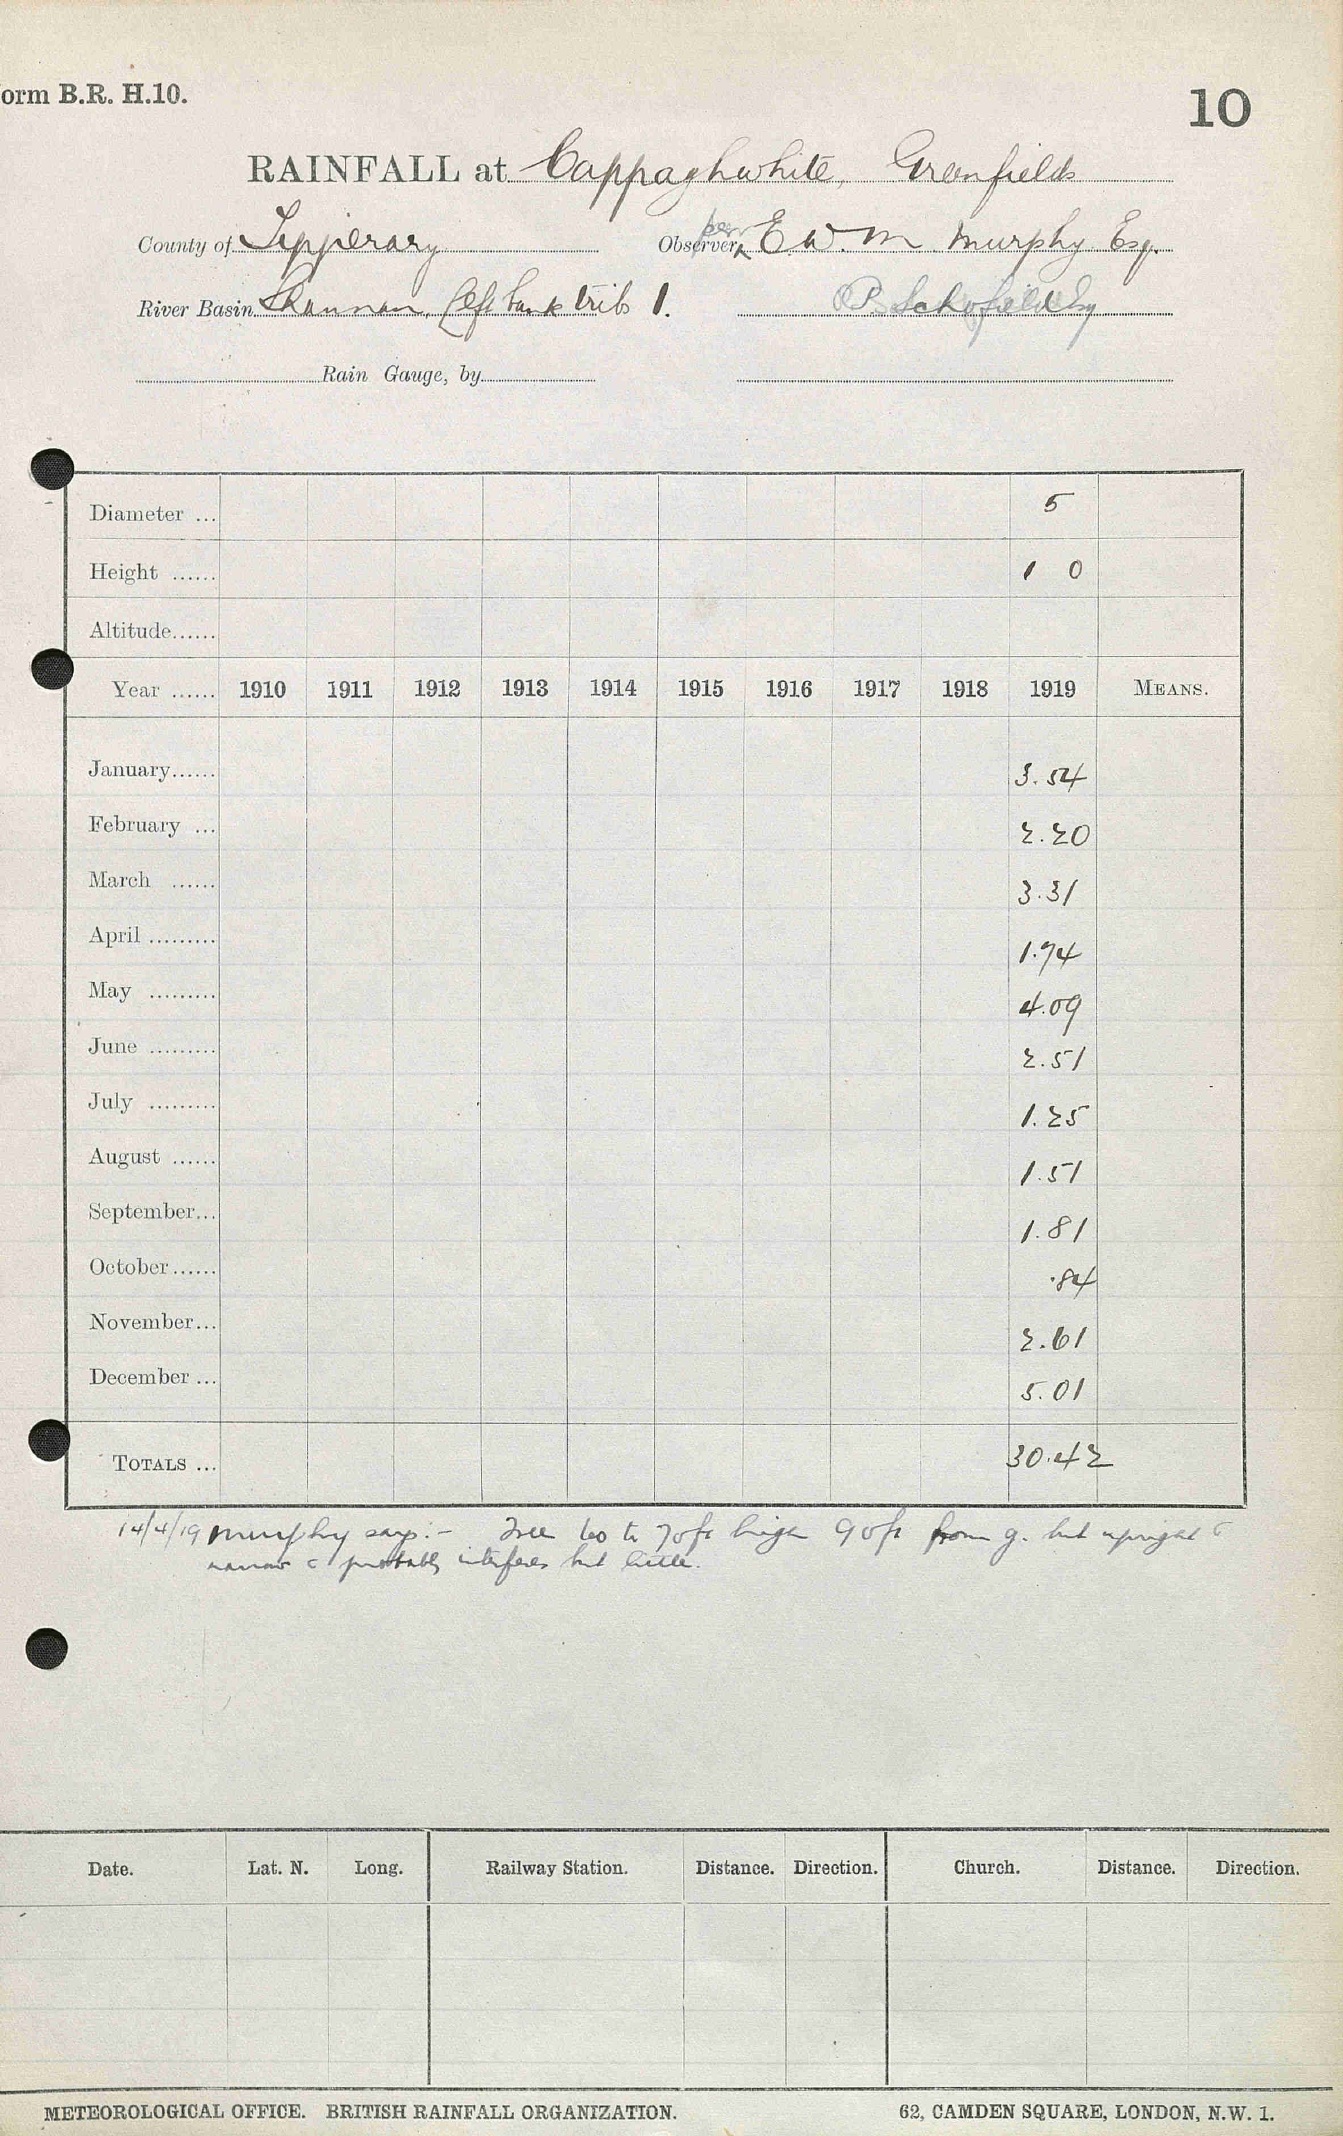 orm B.R. H.10.
10
RAINFALL at Cappaghwhite, Greenfields
County of Tipperary
per
Observer, E. W. M Murphy Esq.
River Basin Shannon, Left bank tribs 1.
P. Schofield Esq
Rain Gauge, by
Diameter ... 5
Height ...... 1 0
Altitude......
Year ...... 1910 1911 1912 1913 1914 1915 1916 1917 1918 1919 MEANS.
January...... 3.54
February ... 2.20
March ...... 3.31
April ......... 1.74
May ......... 4.09
June ......... 2.51
July ......... 1.25
August ...... 1.51
September... 1.81
October...... .84
November... 2.61
December ... 5.01
TOTALS ... 30.42
14/4/19 Murphy says:- Tree 60 to 70ft high 90ft from g. but upright &
narrow & probably interferes but little.
Date. Lat. N. Long. Railway Station. Distance. Direction. Church. Distance. Direction.
METEOROLOGICAL OFFICE. BRITISH RAINFALL ORGANIZATION. 62, CAMDEN SQUARE, LONDON, N.W. 1.